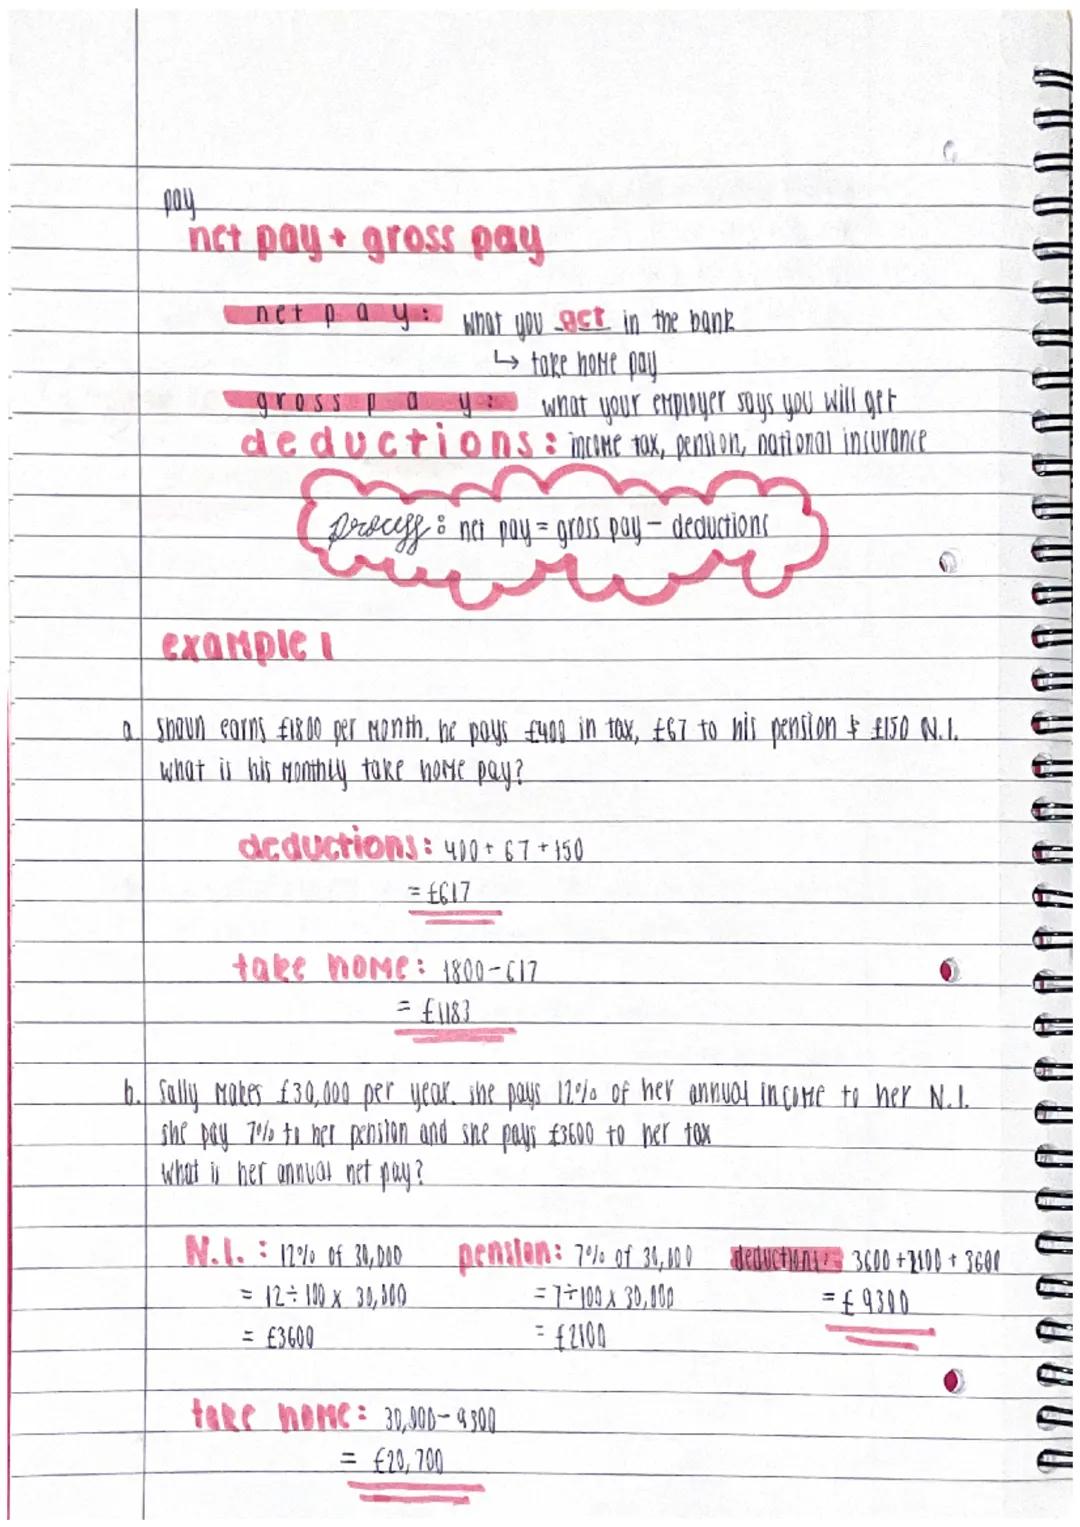 pay
net pay + gross pay
net pay: what you get in the bank
↳ take home pay
gross pay: what your employer says you will get
deductions: income tax, pension, national insurance
process: net pay = gross pay - deductions
example 1
a. Shaun earns £1800 per month. he pays £400 in tax, £67 to his pension & £150 N.I.
what is his monthly take home pay?
deductions: 400 + 67 + 150
= £617
take home: 1800 - 617
= £1183
b. Sally makes £30,000 per year. she pays 12% of her annual income to her N.I.
she pay 7% to her pension and she pays £3600 to her tax
what is her annual net pay?
N.I.: 12% of 30,000 pension: 7% of 30,000 deductions: 3600 + 2100 + 3600
= 12 ÷ 100 x 30,000 = 7 ÷ 100 x 30,000 = £9300
= £3600 = £2100
take home: 30,000 - 9300
= £20,700